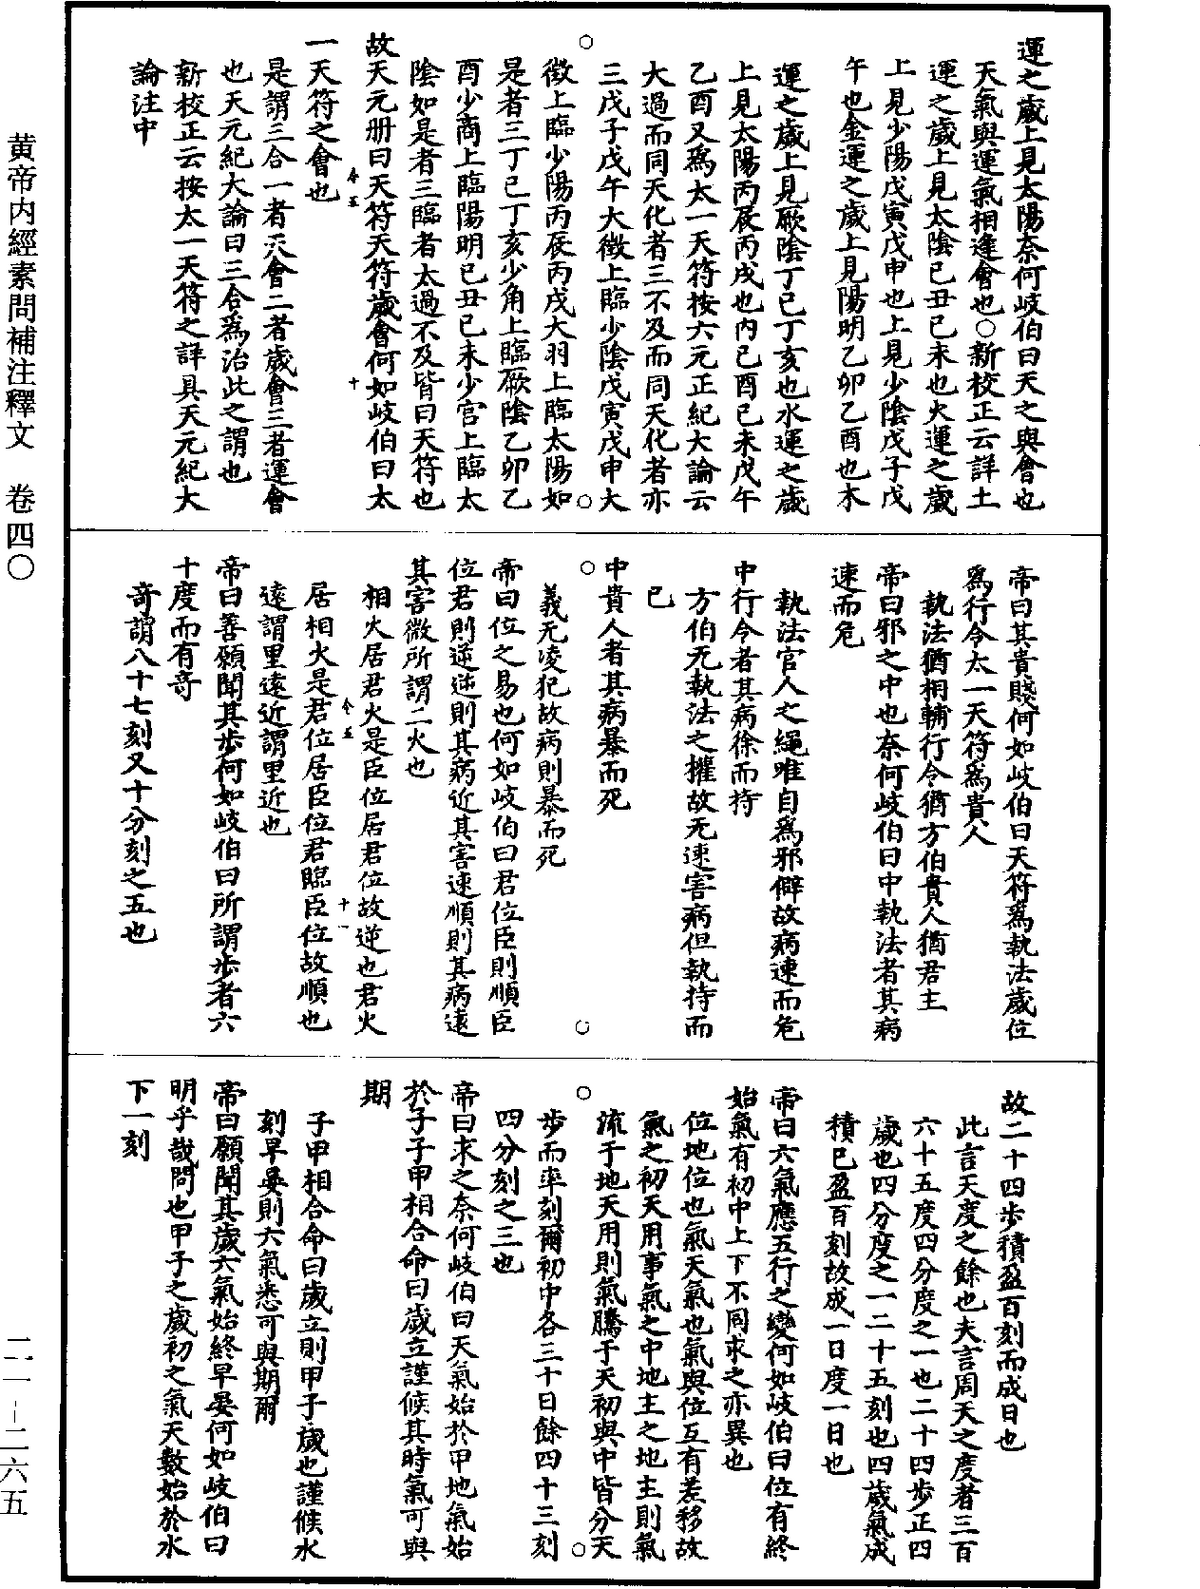 運之歲上見太陽奈何岐伯曰天之與會也
天氣與運氣相逢會也○新校正云詳土
運之歲上見太陰己丑己未也火運之歲
上見少陽戊寅戊申也上見少陰戊子戊
午也金運之歲上見陽明乙卯乙酉也木
運之歲上見厥陰丁巳丁亥也水運之歲
上見太陽丙辰丙戌也內己酉己未戊午
乙酉又爲太一天符按六元正紀大論云
大過而同天化者三不及而同天化者亦
三戊子戊午大徵上臨少陰戊寅戊申大
徵上臨少陽丙辰丙戌大羽上臨太陽如
是者三丁巳丁亥少角上臨厥陰乙卯乙
酉少商上臨陽明己丑己未少宮上臨太
陰如是者三臨者太過不及皆曰天符也
故天元册曰天符天符歲會何如岐伯曰太
一天符之會也
是謂三合一者天會二者歲會三者運會
也天元紀大論曰三合爲治此之謂也
新校正云按太一天符之詳具天元紀大
論注中
帝曰其貴賤何如岐伯曰天符爲執法歲位
爲行令太一天符爲貴人
執法猶相輔行令猶方伯貴人猶君主
帝曰邪之中也奈何岐伯曰中執法者其病
速而危
執法官人之繩唯自爲邪僻故病速而危
中行令者其病徐而持
方伯无執法之權故无速害病但執持而
已
中貴人者其病暴而死
義无凌犯故病則暴而死
帝曰位之易也何如岐伯曰君位臣則順臣
位君則逆逆則其病近其害速順則其病遠
其害微所謂二火也
相火居君火是臣位居君位故逆也君火
居相火是君位居臣位君臨臣位故順也
遠謂里遠近謂里近也
帝曰善願聞其步何如岐伯曰所謂步者六
十度而有奇
奇謂八十七刻又十分刻之五也
故二十四步積盈百刻而成日也
此言天度之餘也夫言周天之度者三百
六十五度四分度之一也二十四步正四
歲也四分度之一二十五刻也四歲氣成
積已盈百刻故成一日度一日也
帝曰六氣應五行之變何如岐伯曰位有終
始氣有初中上下不同求之亦異也
位地位也氣天氣也氣與位互有差移故
氣之初天用事氣之中地主之地主則氣
流于地天用則氣騰于天初與中皆分天
步而率刻爾初中各三十日餘四十三刻
四分刻之三也
帝曰求之奈何岐伯曰天氣始於甲地氣始
於子子甲相合命曰歲立謹候其時氣可與
期
子甲相合命曰歲立則甲子歲也謹候水
刻早晏則六氣悉可與期爾
帝曰願聞其歲六氣始終早晏何如岐伯曰
明乎哉問也甲子之歲初之氣天數始於水
下一刻
黄帝内經素問補注釋文　卷四○
二一－二六五